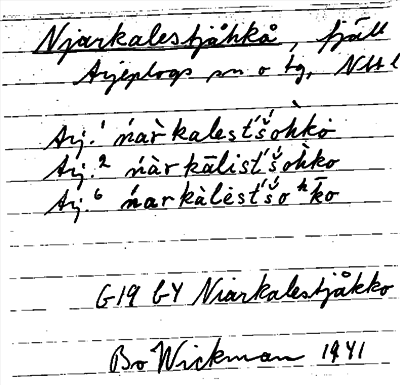 Njarkalestjåhkå, fjäll
Arjeplogs sn o tg, Nbtl
Arj.¹ ńàrkalest́š́oh̀ko
Arj.² ńàrkālist́š́oh̀ko
Arj.⁶ ńarkàlèst́š́oʰk̄o
G19 bY Niarkalestjåkko
Bo Wickman 1941